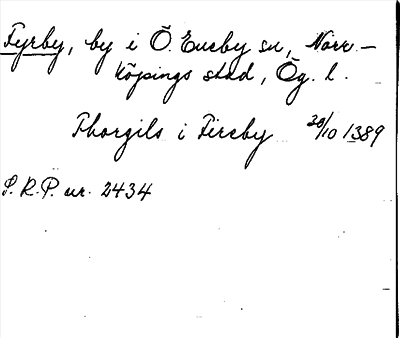 Fyrby, by i Ö. Eneby sn, Norr-
köpings stad, Ög. l.
Thorgils i Fireby 28/10 1389
S. R. P. nr. 2434